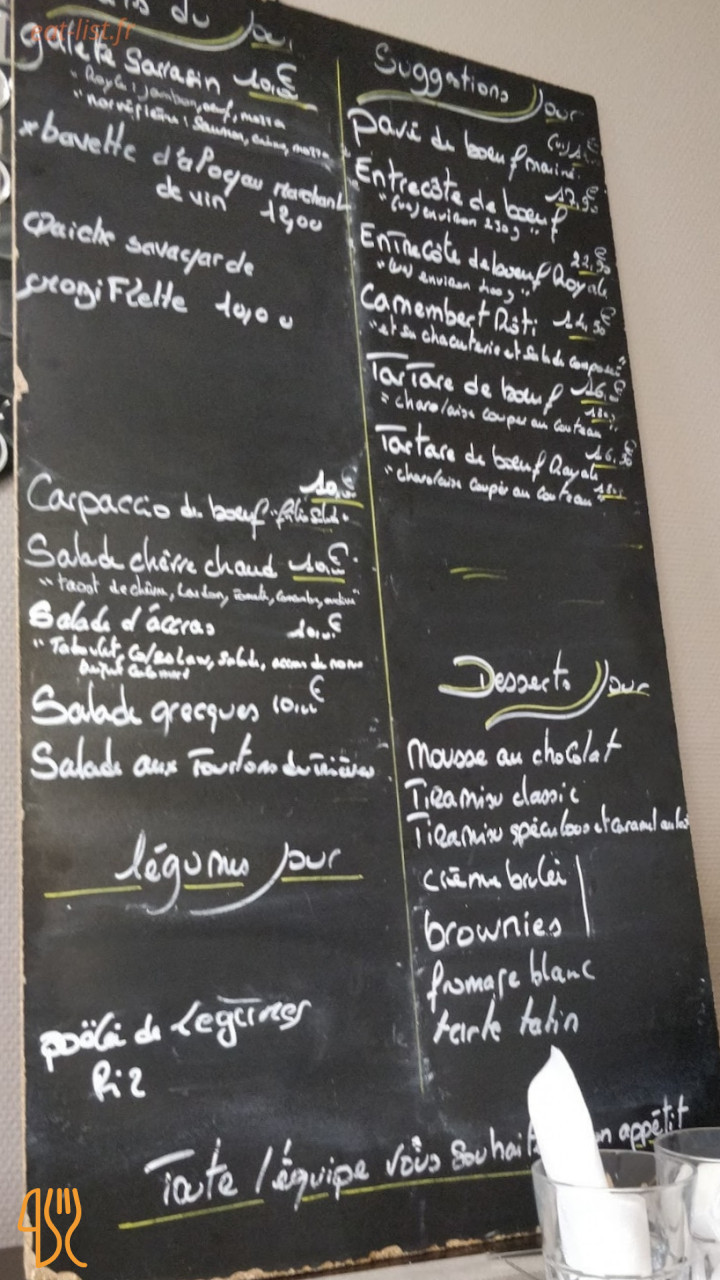 eat-list.fr
du jour
galete Sarrasin 10,00€
" Royale : jambon, oeuf, mozza
" norvégienne : Saumon, mozza
* bavette d'aloyau marchant
de vin 12,00
Quiche savagarde
croziflette 10,00
Carpaccio de boeuf
Salade chèvre chaud 10,00€
Salade d'accras 10,00€
Salade grecques 10,00€
Salade aux Tourtons du Trièves
légumes jour
poêlé de légumes
Riz
Suggestions Jour
pavé de boeuf mariné
Entrecôte de boeuf 17,90€
"(vs) environ 230g"
Entrecôte de boeuf Royale 22,90€
"(vs) environ 400g"
Camembert Rôti 14,90€
"et sa chacuterie et salade composée"
Tartare de boeuf 16,€
"charolaise couper au couteau" 180g
Tartare de boeuf Royale 16,90€
"charolaise coupé au couteau" 180g
Desserts Jour
mousse au chocolat
Tiramisu classic
Tiramisu spéculoos et caramel au
crème brulei
brownies
fromage blanc
tarte tatin
Toute l'équipe vous souhaite bon appétit